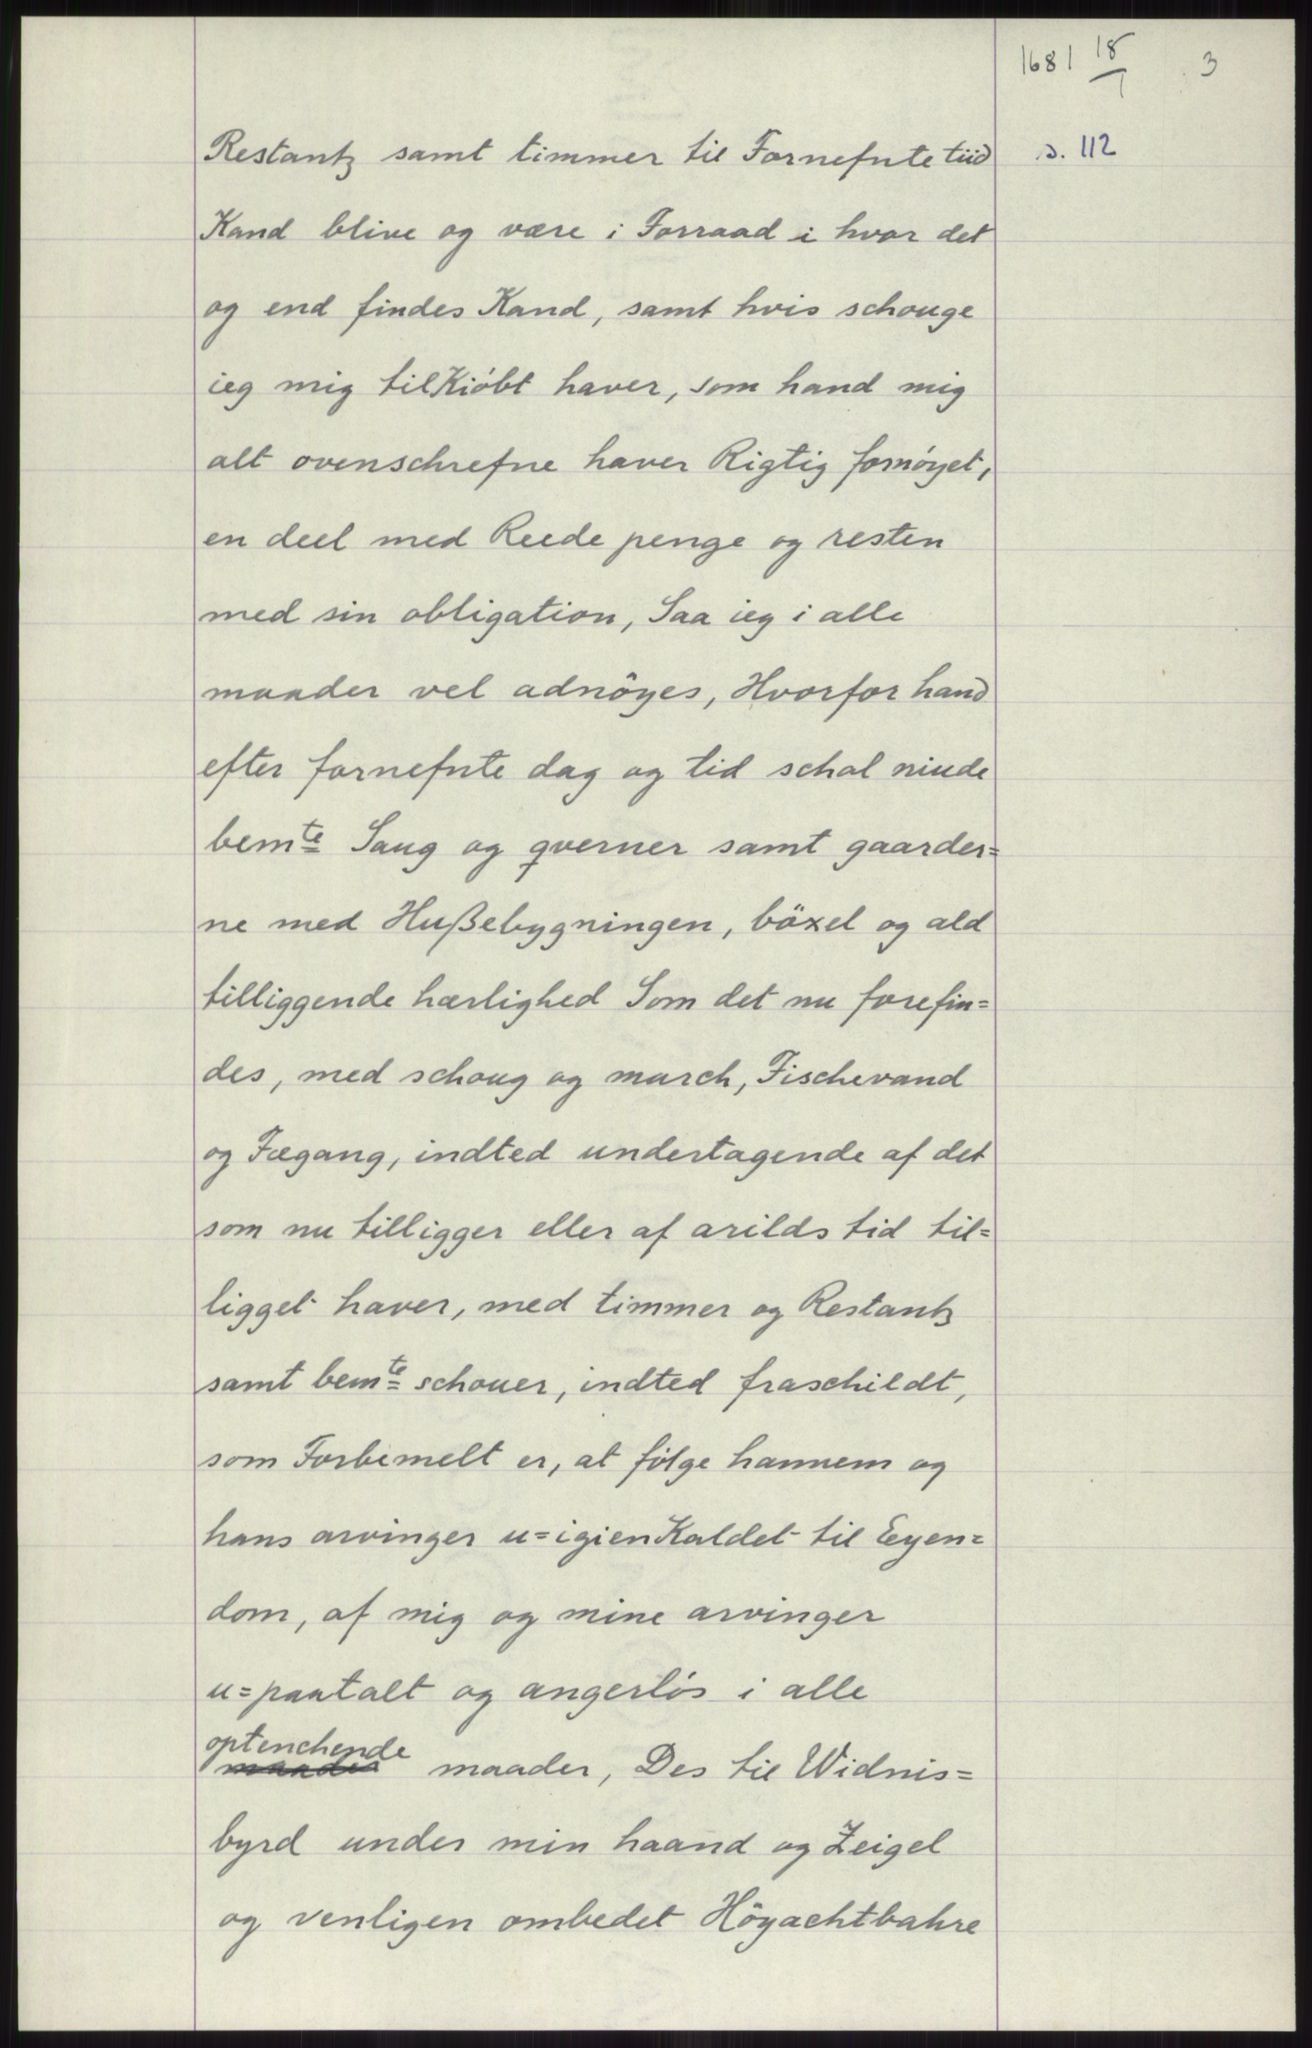 1681 18/7 3
Restantz samt timmer til Fornefnte tiid s. 112
Kand blive og være i Forraad i hvor det
og end findes Kand, samt hvis schouge
ieg mig tilKiöbt haver, som hand mig
alt ovenschrefne haver Rigtig fornöyet,
en deel med Reede penge og resten
med sin obligation, Saa ieg i alle
maader vel adnöyes, Hvorfor hand
efter fornefnte dag og tid schal niude
bemte Saug og qverner samt gaarder=
ne med Hußebygningen, böxel og ald
tilliggende herlighed Som det nu forefin=
des, med schoug og march, Fischevand
og Fægang, indted undertagende af det
som nu tilligger eller af arilds tid til=
ligget haver, med timmer og Restantz
samt bemte schouer, indted fraschildt,
som Forbemelt er, at følge hannem og
hans arvinger u=igienKaldet til Eyen=
dom, af mig og mine arvinger
u=paatalt og angerlös i alle
optenchende
maader maader, Des til Widnis=
byrd under min haand og Zeigel
og venligen ombedet Höyachtbahre